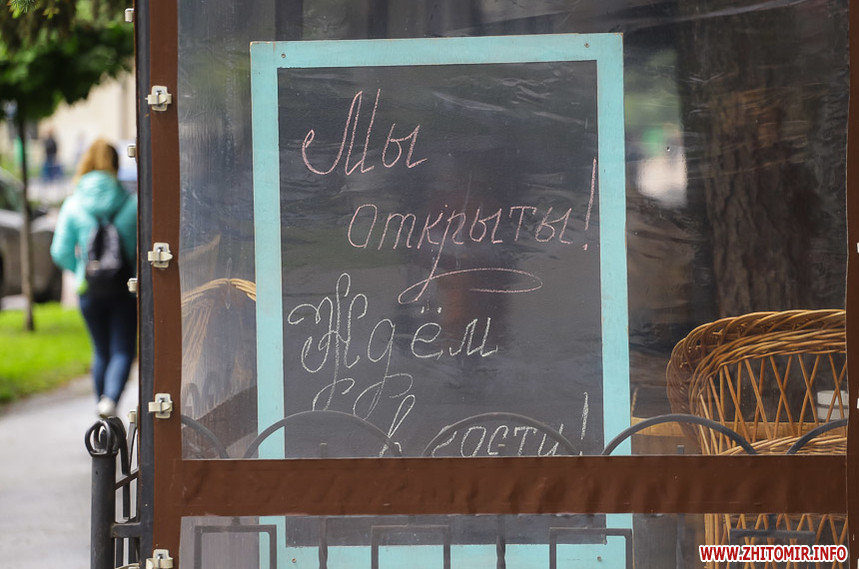 Мы
открыты!
Ждём
в гости!
WWW.ZHITOMIR.INFO